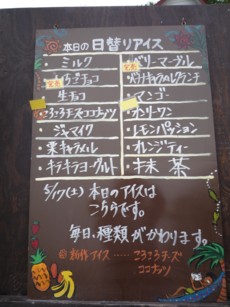 本日の日替りアイス
ミルク
ベリーマーブル
完売
いちごチョコ
バナナキャラメルクランチ
生チョコ
マンゴー
完売
ころころチーズココナッツ
オンリーワン
ジャマイカ
レモンパッション
栗キャラメル
オレンジティー
キラキラヨーグルト
抹茶
5/17(土) 本日のアイスは
こちらです。
毎日、種類がかわります。
新作アイス……ころころチーズ
ココナッツ